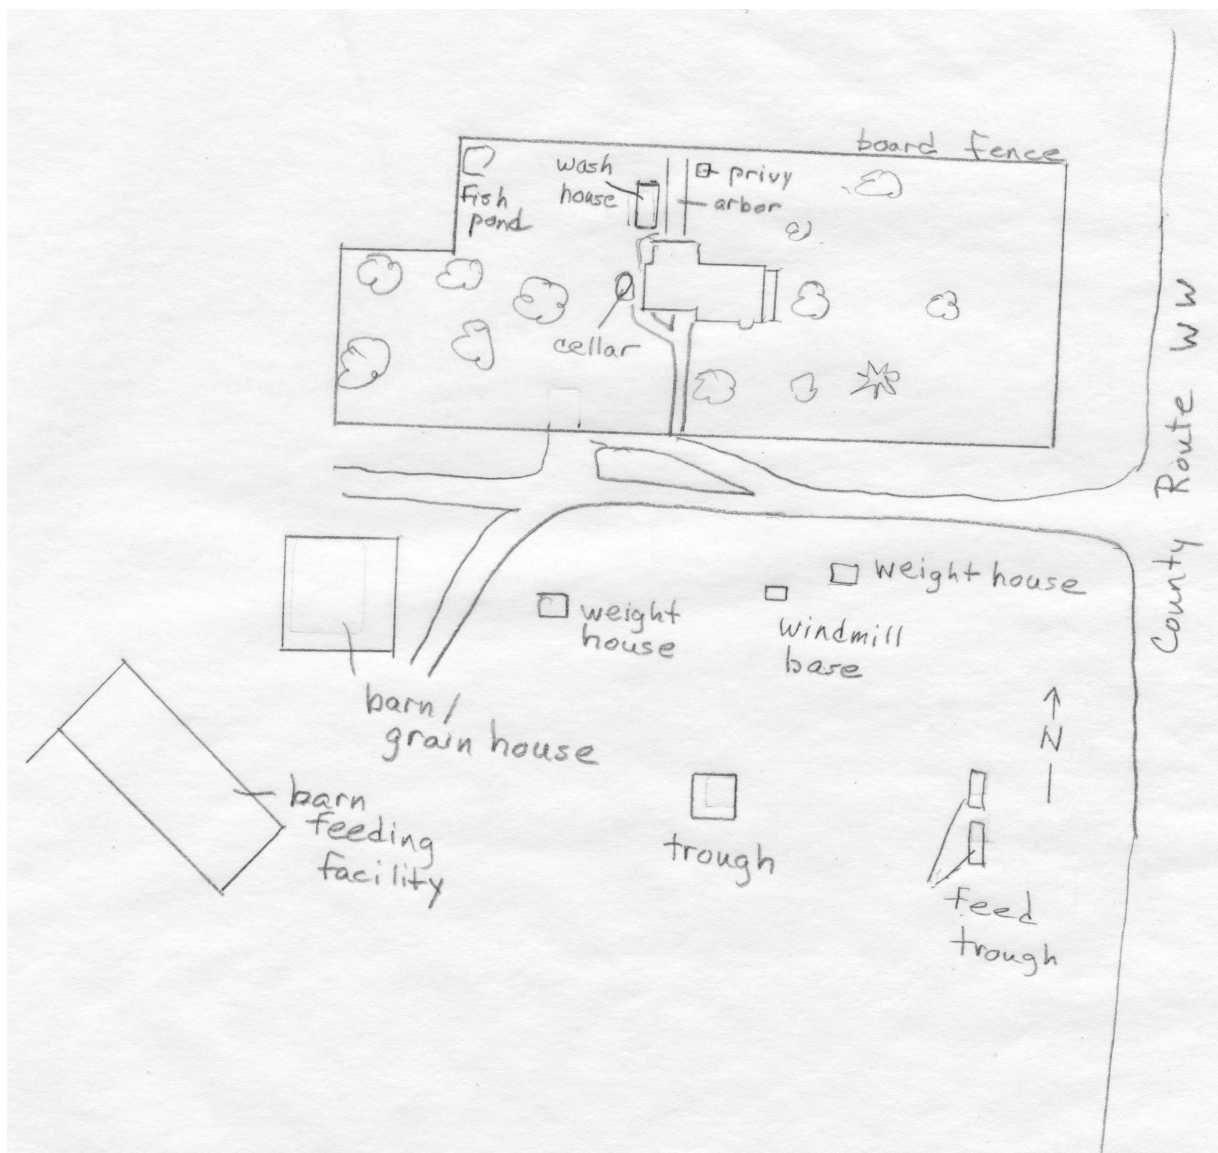 board fence
wash
house
privy
arbor
Fish
pond
cellar
County Route WW
weight house
weight
house
windmill
base
barn/
grain house
N
barn
feeding
facility
trough
feed
trough